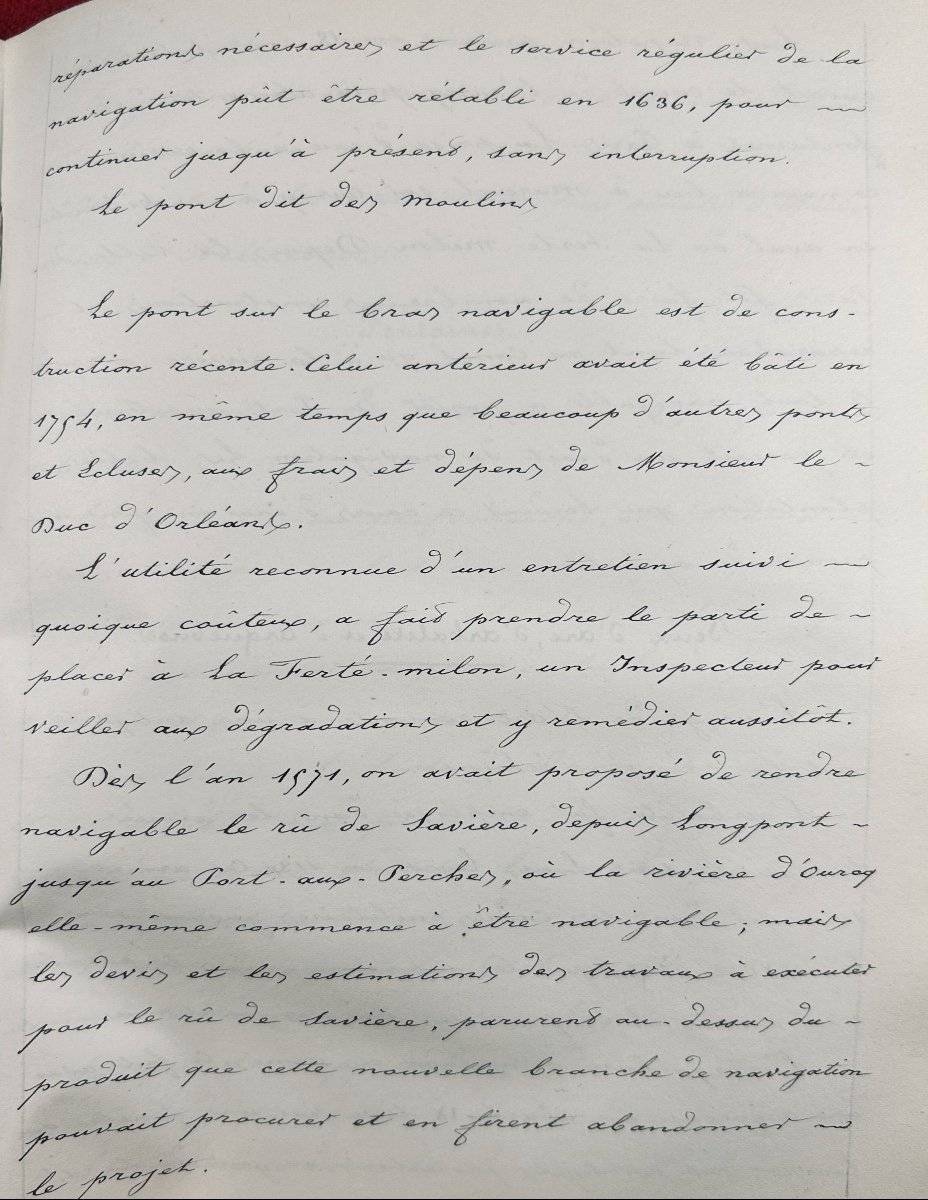 réparations nécessaires et le service régulier de la
navigation pût être rétabli en 1636, pour ~
continuer jusqu'à présent, sans interruption.
Le pont dit des Moulins
Le pont sur le bras navigable est de cons-
truction récente. Celui antérieur avait été bâti en
1754, en même temps que beaucoup d'autres ponts
et Ecluses, aux frais et dépens de Monsieur le -
Duc d'Orléans.
L'utilité reconnue d'un entretien suivi ~
quoique coûteux, a fait prendre le parti de -
placer à La Ferté-milon, un Inspecteur pour
veiller aux dégradations et y remédier aussitôt.
Dès l'an 1571, on avait proposé de rendre
navigable le rû de Savière, depuis Longpont -
jusqu'au Port-aux-Perches, où la rivière d'Ourcq
elle-même commence à être navigable ; mais
les devis et les estimations des travaux à exécuter
pour le rû de Savière, parurent au-dessus du -
produit que cette nouvelle branche de navigation
pouvait procurer et en firent abandonner ~
le projet.